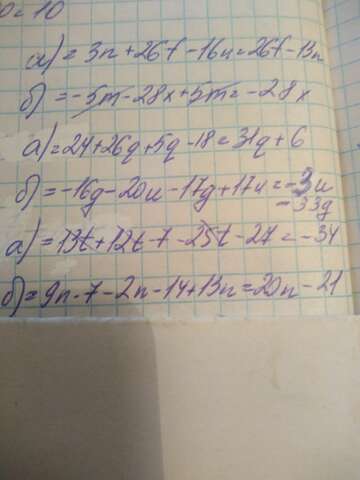 = 10
а) = 3n + 26f - 16n = 26f - 13n
б) = -5m - 28x + 5m = -28x
а) = 24 + 26q + 5q - 18 = 31q + 6
б) = -16g - 20u - 17g + 17u = -3u
- 33g
а) = 13t + 12t - 7 - 25t - 27 = -34
б) = 9n - 7 - 2n - 14 + 13n = 20n - 21